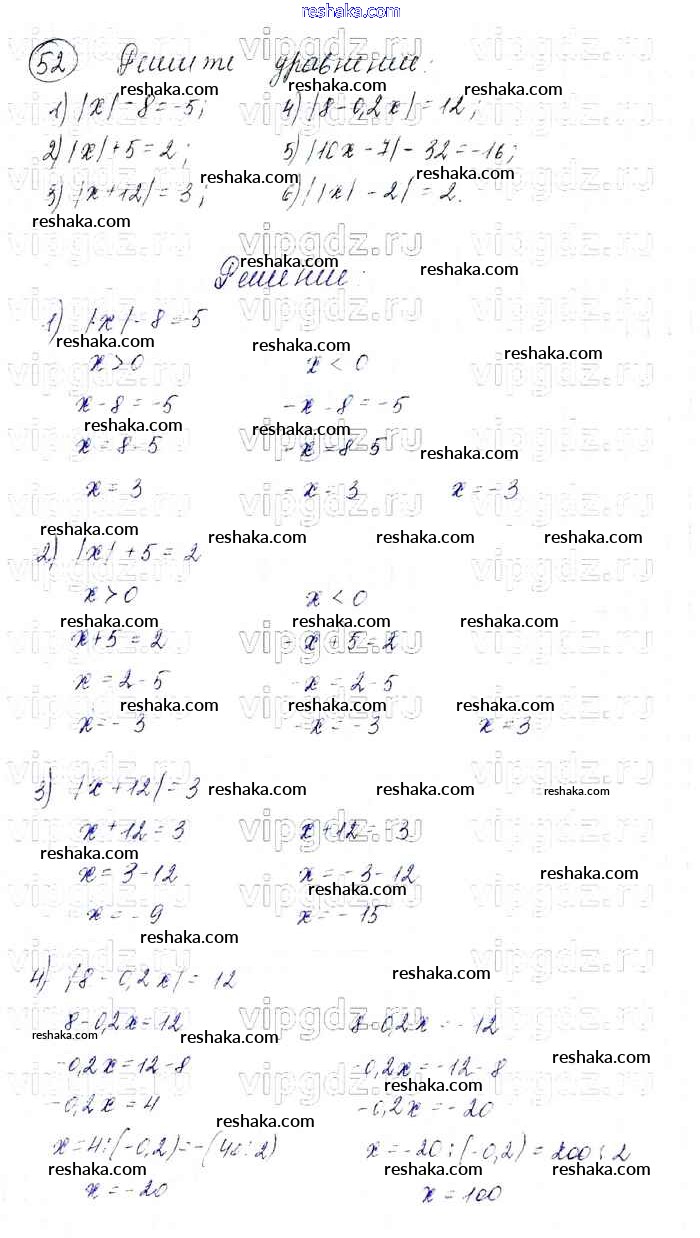 reshaka.com
reshaka.com
52 Решите уравнение:
1) |x| - 8 = -5; 4) |8 - 0,2x| = 12;
2) |x| + 5 = 2; 5) |10x - 7| - 32 = -16;
3) |x + 12| = 3; 6) ||x| - 2| = 2.
Решение:
1) |x| - 8 = -5
x > 0 x < 0
x - 8 = -5 -x - 8 = -5
x = 8 - 5 -x = 8-5
x = 3 -x = 3 x = -3
2) |x| + 5 = 2
x > 0 x < 0
x + 5 = 2 -x + 5 = 2
x = 2 - 5 -x = 2-5
x = -3 -x = -3 x = 3
3) |x + 12| = 3
x + 12 = 3 x + 12 = -3
x = 3 - 12 x = -3 - 12
x = -9 x = -15
4) |8 - 0,2x| = 12
8 - 0,2x = 12 8 - 0,2x = -12
-0,2x = 12 - 8 -0,2x = -12 - 8
-0,2x = 4 -0,2x = -20
x = 4 : (-0,2) = -(40 : 2) x = -20 : (-0,2) = 200 : 2
x = -20 x = 100